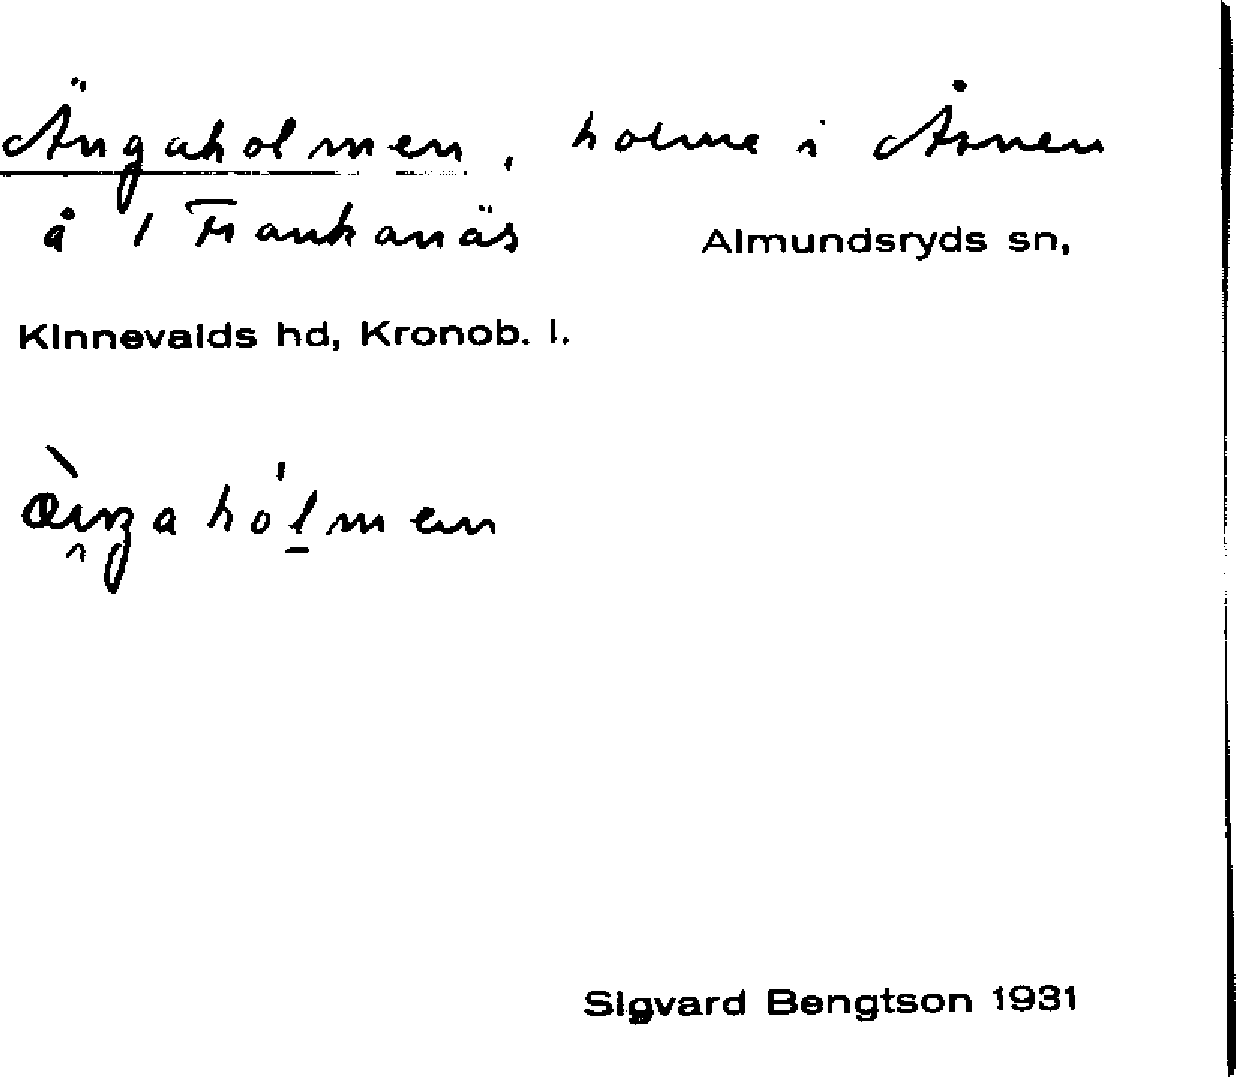 Ängaholmen, holme i Åsnen
å 1 Frankanäs Almundsryds sn,
Kinnevalds hd, Kronob. l.
Sigvard Bengtson 1931